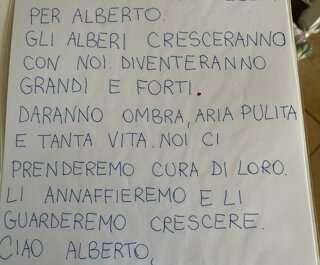 PER ALBERTO.
GLI ALBERI CRESCERANNO
CON NOI. DIVENTERANNO
GRANDI E FORTI.
DARANNO OMBRA, ARIA PULITA
E TANTA VITA. NOI CI
PRENDEREMO CURA DI LORO.
LI ANNAFFIEREMO E LI
GUARDEREMO CRESCERE.
CIAO ALBERTO,